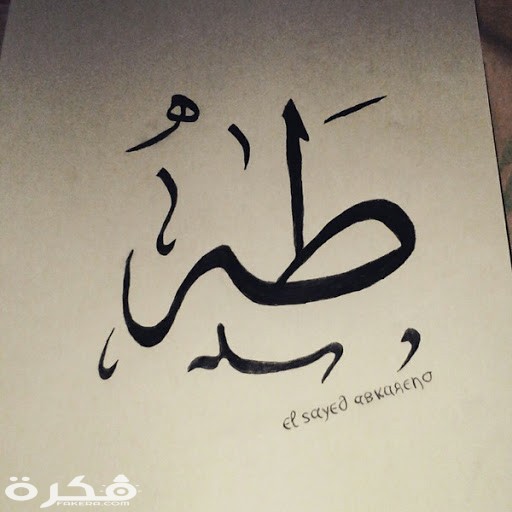 طه
el sayed abkareno
فكرة
FAKERA.COM